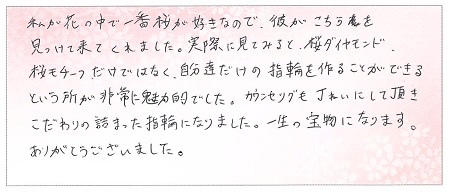 私が花の中で一番桜が好きなので、彼がこちらを
見つけて来てくれました。実際に見てみると、桜ダイヤモンド、
桜モチーフだけではなく、自分達だけの指輪を作ることができる
という所が非常に魅力的でした。カウンセリングも丁ねいにして頂き
こだわりの詰まった指輪になりました。一生の宝物になります。
ありがとうございました。